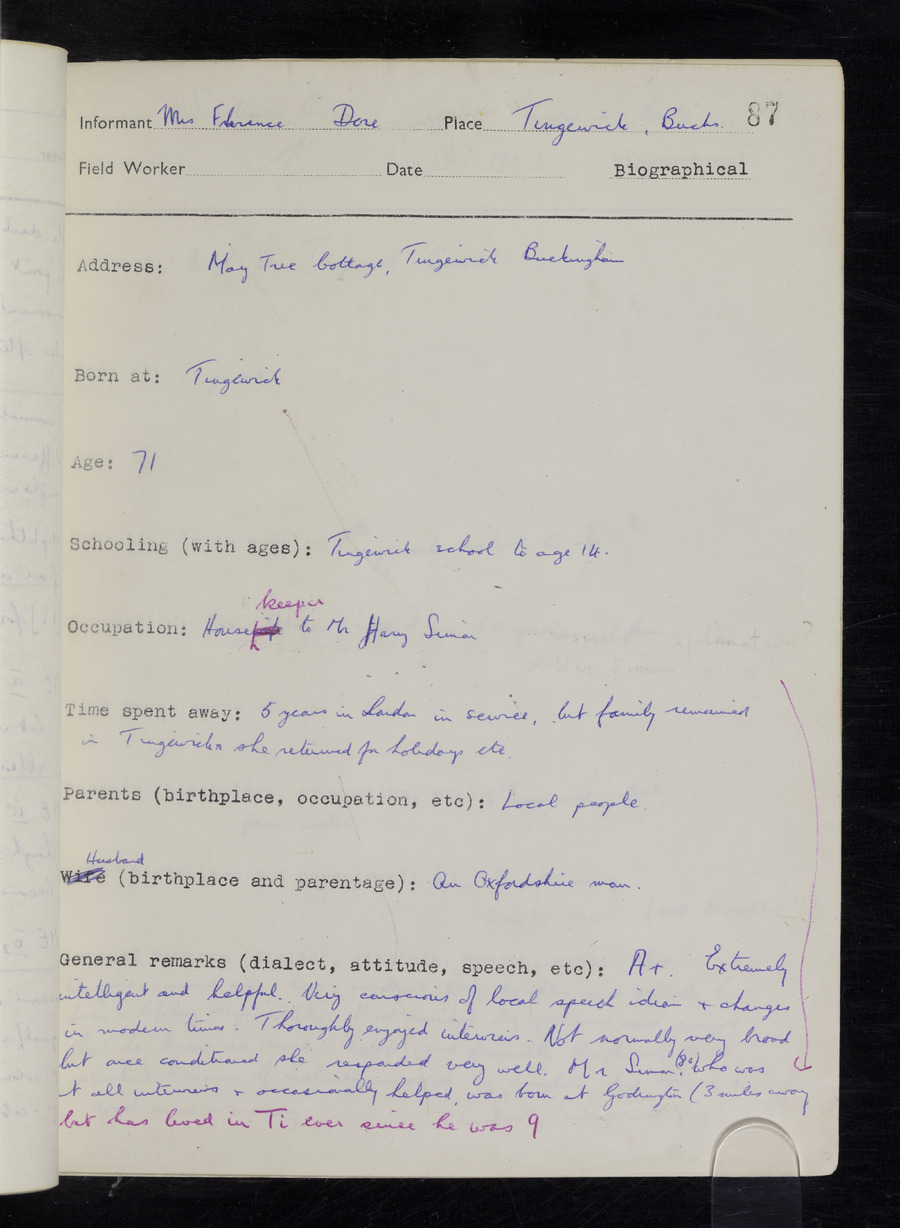 Informant Mrs Florence Dore Place Tingewick, Bucks. 87
Field Worker Date Biographical
Address: May Tree Cottage, Tingewick Buckingham
Born at: Tingewick
Age: 71
Schooling (with ages): Tingewick school to age 14.
keeper
Occupation: House to Mr Harry Simon
Time spent away: 5 years in London in service, but family remained
in Tingewick & she returned for holidays etc.
Parents (birthplace, occupation, etc): Local people.
Husband
Wife (birthplace and parentage): An Oxfordshire man.
General remarks (dialect, attitude, speech, etc): A+. Extremely
intelligent and helpful. Very conscious of local speech idiom + changes
in modern times. Thoroughly enjoyed interviews. Not normally very broad
but once conditioned she responded very well. Mr Simon, who was
at all interviews + occasionally helped, was born at Godington (3 miles away
but has lived in Ti ever since he was 9